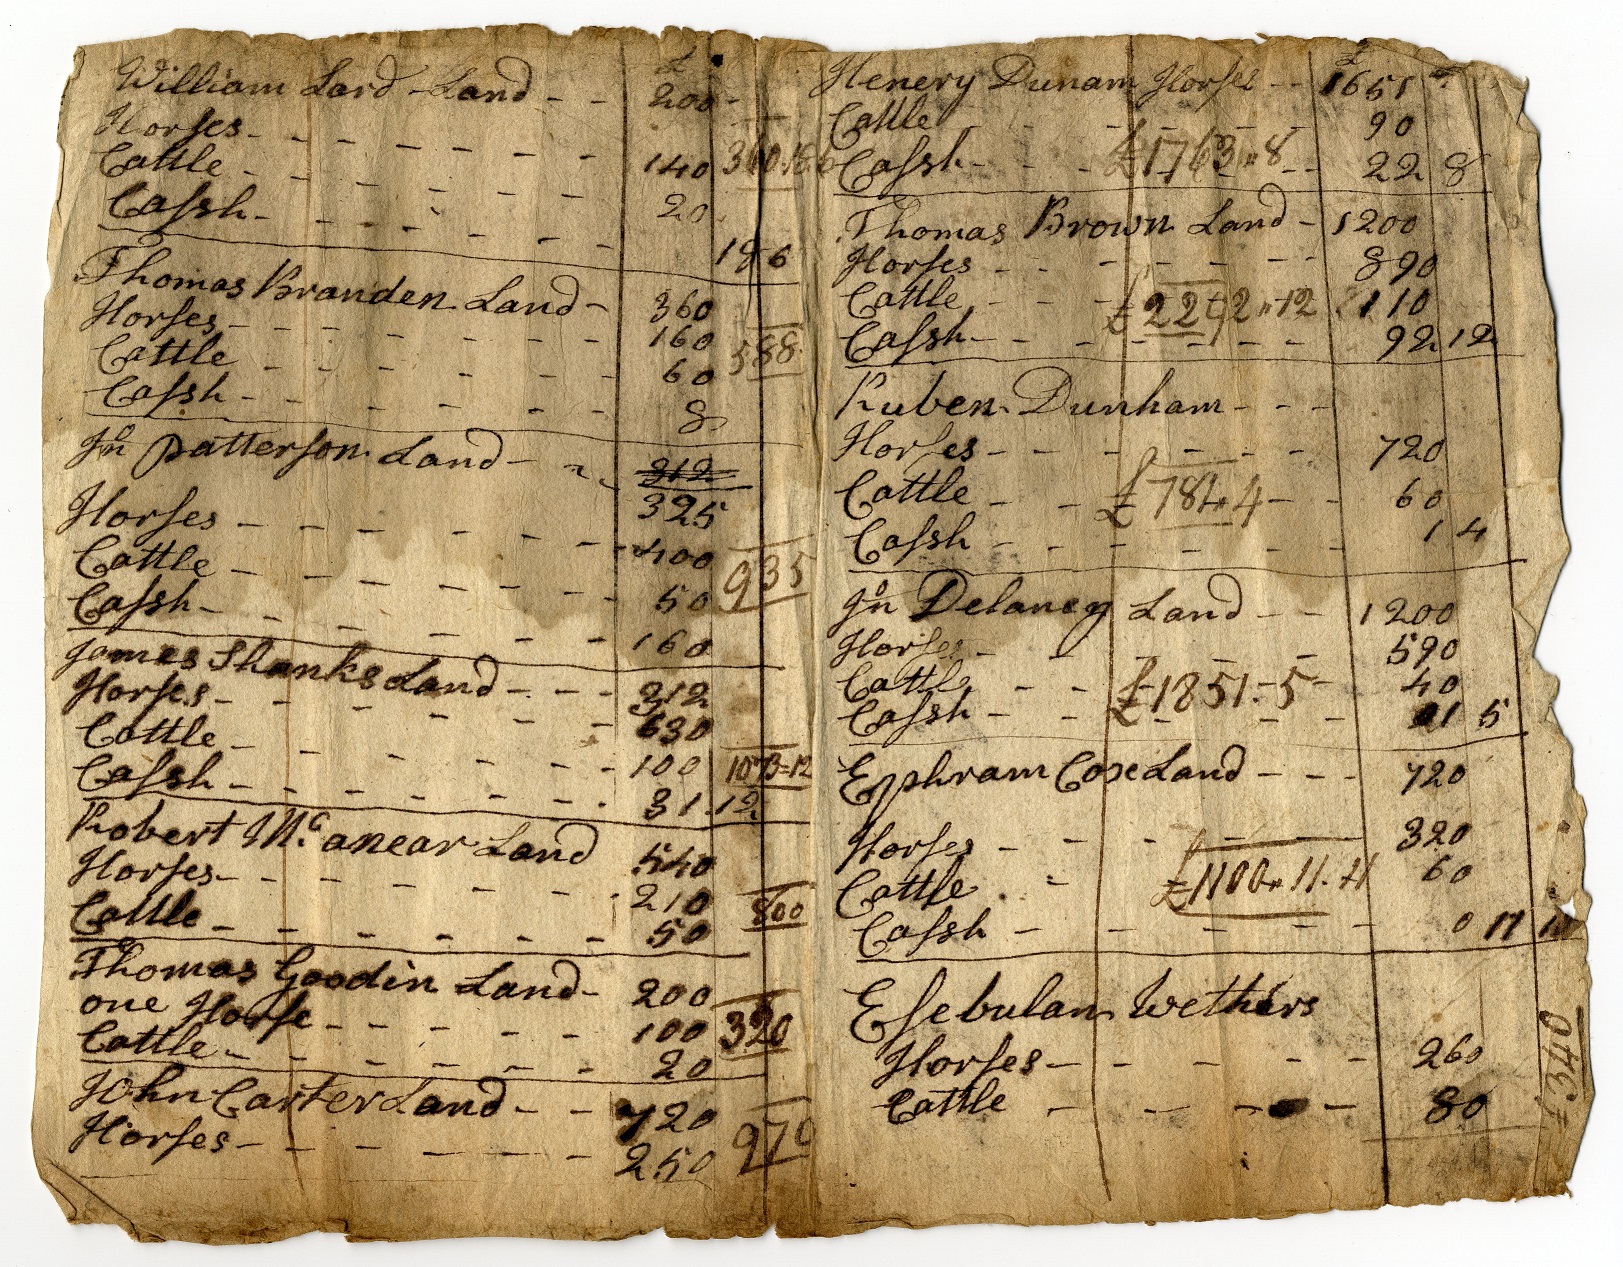 £
William Lard Land - - 200
Horses - - - - - - 140
Cattle - - - - - - 20
Cassh - - - - - - 19 6
Thomas Branden Land - 360
Horses - - - - - - 160
Cattle - - - - - - 60
Cassh - - - - - - 8
588
Jn Patterson Land - - 312
325
Horses - - - - - - 400
Cattle - - - - - - 50
Cassh - - - - - - 160
935
James Shanks Land - - - 312
Horses - - - - - - 630
Cattle - - - - - - 100
Cassh - - - - - - 31 12
1073=12
Robert Mc anear Land 540
Horses - - - - - - 210
Cattle - - - - - - 50
800
Thomas Goodin Land - 200
one Horse - - - - - 100
Cattle - - - - - - 20
320
John Carter Land - - 720
Horses - - - - - - 250
970
£
Henery Dunam Horses - - 1651
Cattle - - - - 90
Cassh - - - - 22 8
£1763 " 8
Thomas Brown Land - 1200
Horses - - - - - - 890
Cattle - - - - 110
Cassh - - - - - - 92 12
£2292 " 12
Ruben Dunham - - -
Horses - - - - - - 720
Cattle - - - - 60
Cassh - - - - - - 1 4
£784 4
Jn Delaney Land - - 1200
Horses - - - - - - 590
Cattle - - - - 40
Cassh - - - - - - 21 5
£1851 - 5
Ephram Cox Land - - - 720
Horses - - - - 320
Cattle - - 60
Cassh - - - - - - 0 11
£1100 " 11 . 4
Esebulan Wethers
Horses - - - - - 260
Cattle - - - - - 80
£340